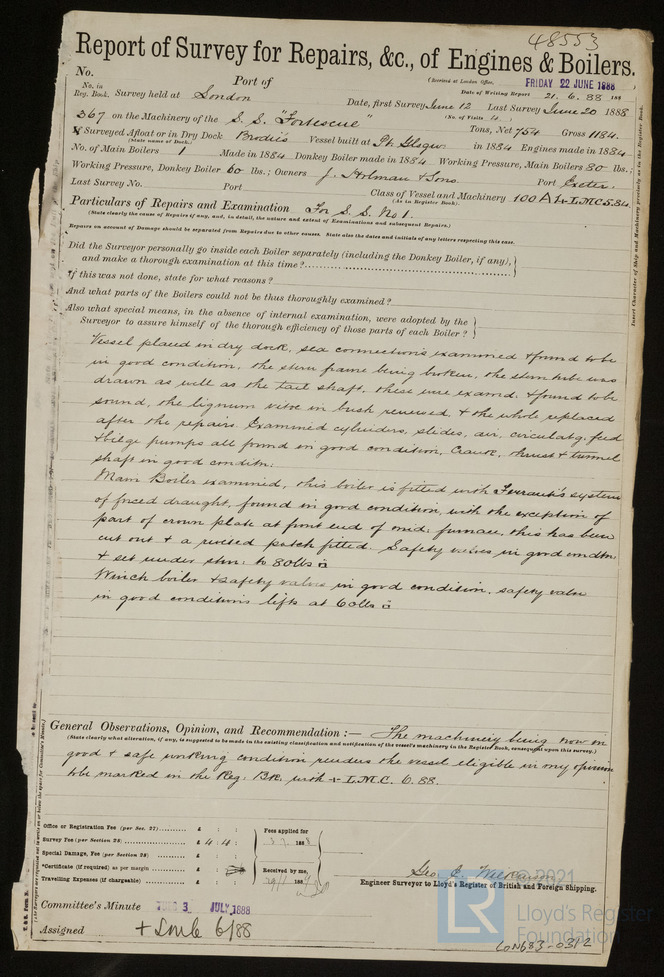 48553
Report of Survey for Repairs, &c., of Engines & Boilers.
(Received at London Office, FRIDAY 22 JUNE 1888
No. Port of
Date of Writing Report 21. 6. 88 188
No. in Reg. Book. Survey held at London Date, first Survey June 12 Last Survey June 20 1888
(No. of Visits 4.)
367 on the Machinery of the S. S. "Fortescue" Tons, Net 754 Gross 1184.
Surveyed Afloat or in Dry Dock Brodie's Vessel built at Pt. Glasgow in 1884 Engines made in 1884
(State name of Dock.)
No. of Main Boilers 1 Made in 1884 Donkey Boiler made in 1884. Working Pressure, Main Boilers 80 lbs.
Working Pressure, Donkey Boiler 60 lbs.; Owners J. Holman & Sons. Port Exeter.
Last Survey No. Port Class of Vessel and Machinery 100 A1 + L.M.C. 5.84
(As in Register Book)
Particulars of Repairs and Examination For S. S. No 1.
(State clearly the cause of Repairs if any, and, in detail, the nature and extent of Examinations and subsequent Repairs.)
Repairs on account of Damage should be separated from Repairs due to other causes. State also the dates and initials of any letters respecting this case.
Did the Surveyor personally go inside each Boiler separately (including the Donkey Boiler, if any),
and make a thorough examination at this time?
If this was not done, state for what reasons?
And what parts of the Boilers could not be thus thoroughly examined?
Also what special means, in the absence of internal examination, were adopted by the
Surveyor to assure himself of the thorough efficiency of those parts of each Boiler?
Vessel placed in dry dock, sea connections examined & found to be
in good condition, the stern frame being broken, the stern tube was
drawn as well as the tail shaft, these were examd. & found to be
sound, the lignum vitæ in bush renewed, & the whole replaced
after the repairs. Examined cylinders, slides, air, circulatg. feed
& bilge pumps all found in good condition, Crank, thrust & tunnel
shaft in good conditn:
Main Boiler examined, this boiler is fitted with Ferrauti's system
of forced draught, found in good condition, with the exception of
part of crown plate at front end of mid: furnace, this has been
cut out & a riveted patch fitted. Safety valves in good condtn
& set under stm: to 80lbs □
Winch boiler & safety valve in good condition, safety valve
in good conditions lifts at 60lbs □
General Observations, Opinion, and Recommendation :— The machinery being now in
(State clearly what alteration, if any, is suggested to be made in the existing classification and notification of the vessel's machinery in the Register Book, consequent upon this survey.)
good & safe working condition renders the vessel eligible in my opinion
to be marked in the Reg: Bk with + L.M.C. 6.88.
Office or Registration Fee (per Sec. 27) £ : :
Survey Fee (per Section 28) £ 4 : 4 :
Special Damage Fee (per Section 28) £ : :
*Certificate (if required) as per margin £ : :
Travelling Expenses (if chargeable) £ : :
Fees applied for
188
Received by me,
188
Geo. J. Wilkinson
Engineer Surveyor to Lloyd's Register of British and Foreign Shipping.
Committee's Minute TUES 3 JULY 1888
Assigned + LMC 6/88
Insert Character of Ship and Machinery precisely as in the Register Book.
©2021
LR
Lloyd's Register
Foundation
LON683-0312